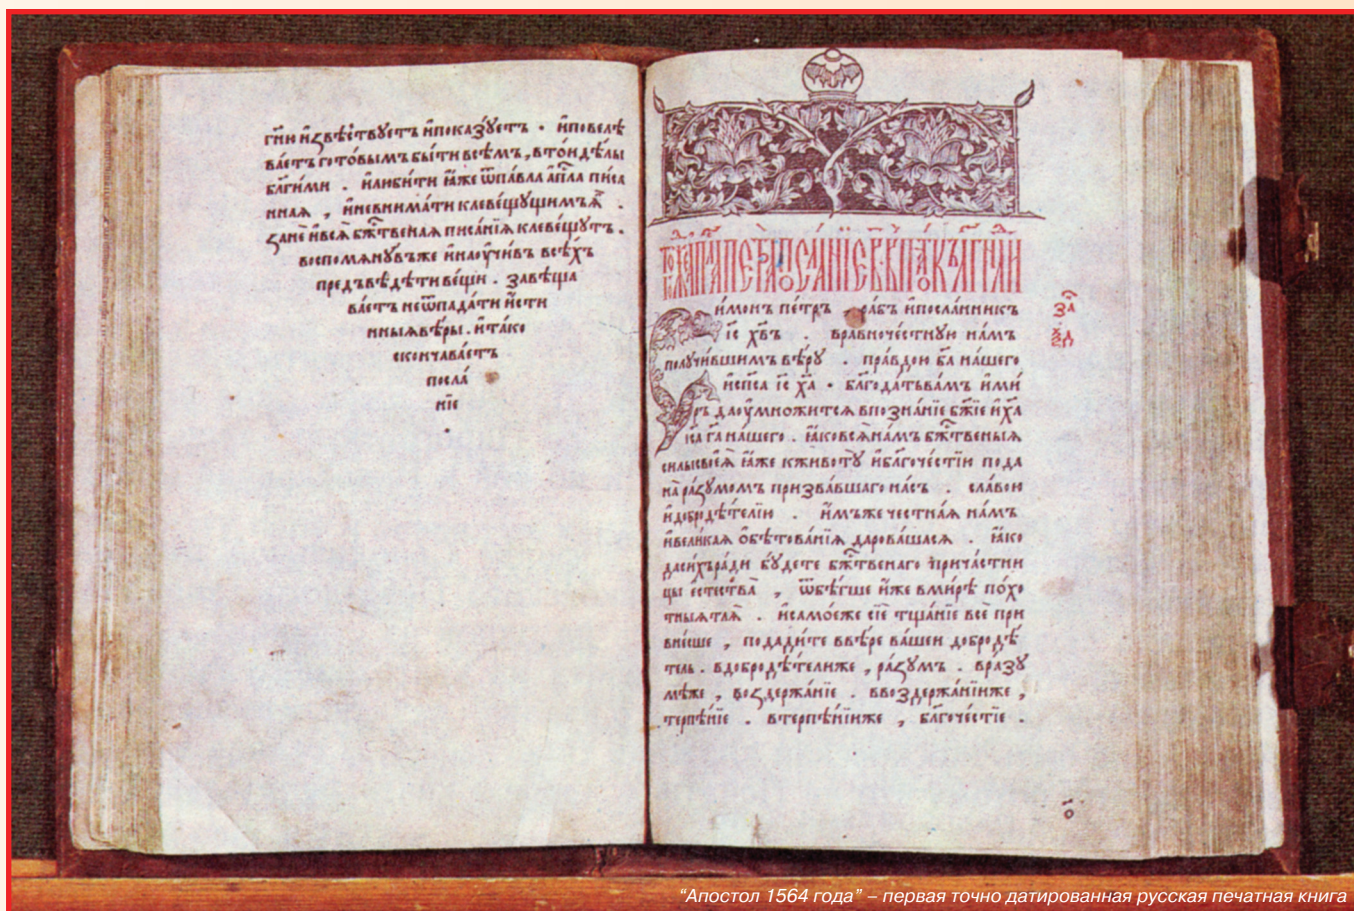 гнⷭи и҆ꙁвѣ́ствꙋетъ и҆пока́ꙁꙋетъ . и҆повелѣ
ва́етъ гото́вымъ бы́ти всѣ́мъ , втои дѣ́лы
блги́ми . и҆люби́ти ꙗ҆́же ѿпа́вла а҆пⷭла писа
нная , и҆невнима́ти клеве́щꙋщимъ ꙗ҆̀ .
ꙁанѐ и҆всѧ̀ бж҃твеная писа́нїꙗ клеве́щꙋтъ .
воспомянꙋ́вже и҆наоу҆чи́въ всѣ́хъ
предъвѣ́дѣти ве́щи . завѣща
ва́етъ неѿпада́ти и҆сти
нныя вѣ́ры . и҆та́ко
сконча́ваетъ
посла́
нїе
.
симонъ пе́тръ , ра́бъ и҆посла́нникъ
і҆с хв҃ъ . вравноче́стнꙋю на́мъ
полꙋчи́вшимъ вѣ́рꙋ . пра́вдою бг҃а на́шего
и҆сп҃са і҆с х҃а . благода́ть ва́мъ и҆ми́
ръ даоу҆мно́жится впозна́нїе бж҃їе и҆х҃а
і҆са га҃ на́шего . ꙗ҆́ко вся̀ на́мъ бж҃твеныя
силы своея̀ ꙗ҆́же кживотꙋ̀ и҆бл҃гоче́стїю пода
на̀ ра́ꙁꙋмомъ призва́вшаго на́съ . сла́вою
и҆добродѣ́телїю . и҆́мъже честна́я на́мъ
и҆вели́кая ѻ҆бѣтова́нїя дарова́шася . ꙗ҆́ко
даси́хъ ра́ди бꙋ́дете бж҃твенаго прича́стни
цы естества̀ , ѿбѣ́гше и҆́же вми́рѣ по́хо
тныя тля̀ . и҆само́еже сїѐ тща́нїе всѐ при
вне́сше , подади́те ввѣ́ре ва́шеи добродѣ́
тель . вдобродѣ́телиже , ра́ꙁꙋмъ . вра́зꙋ
мѣже , воꙁдержа́нїе . ввоздержа́нїиже ,
терпѣ́нїе . втерпѣ́нїиже , бл҃гоче́стїе .
за
ѻ҃
“Апостол 1564 года” – первая точно датированная русская печатная книга